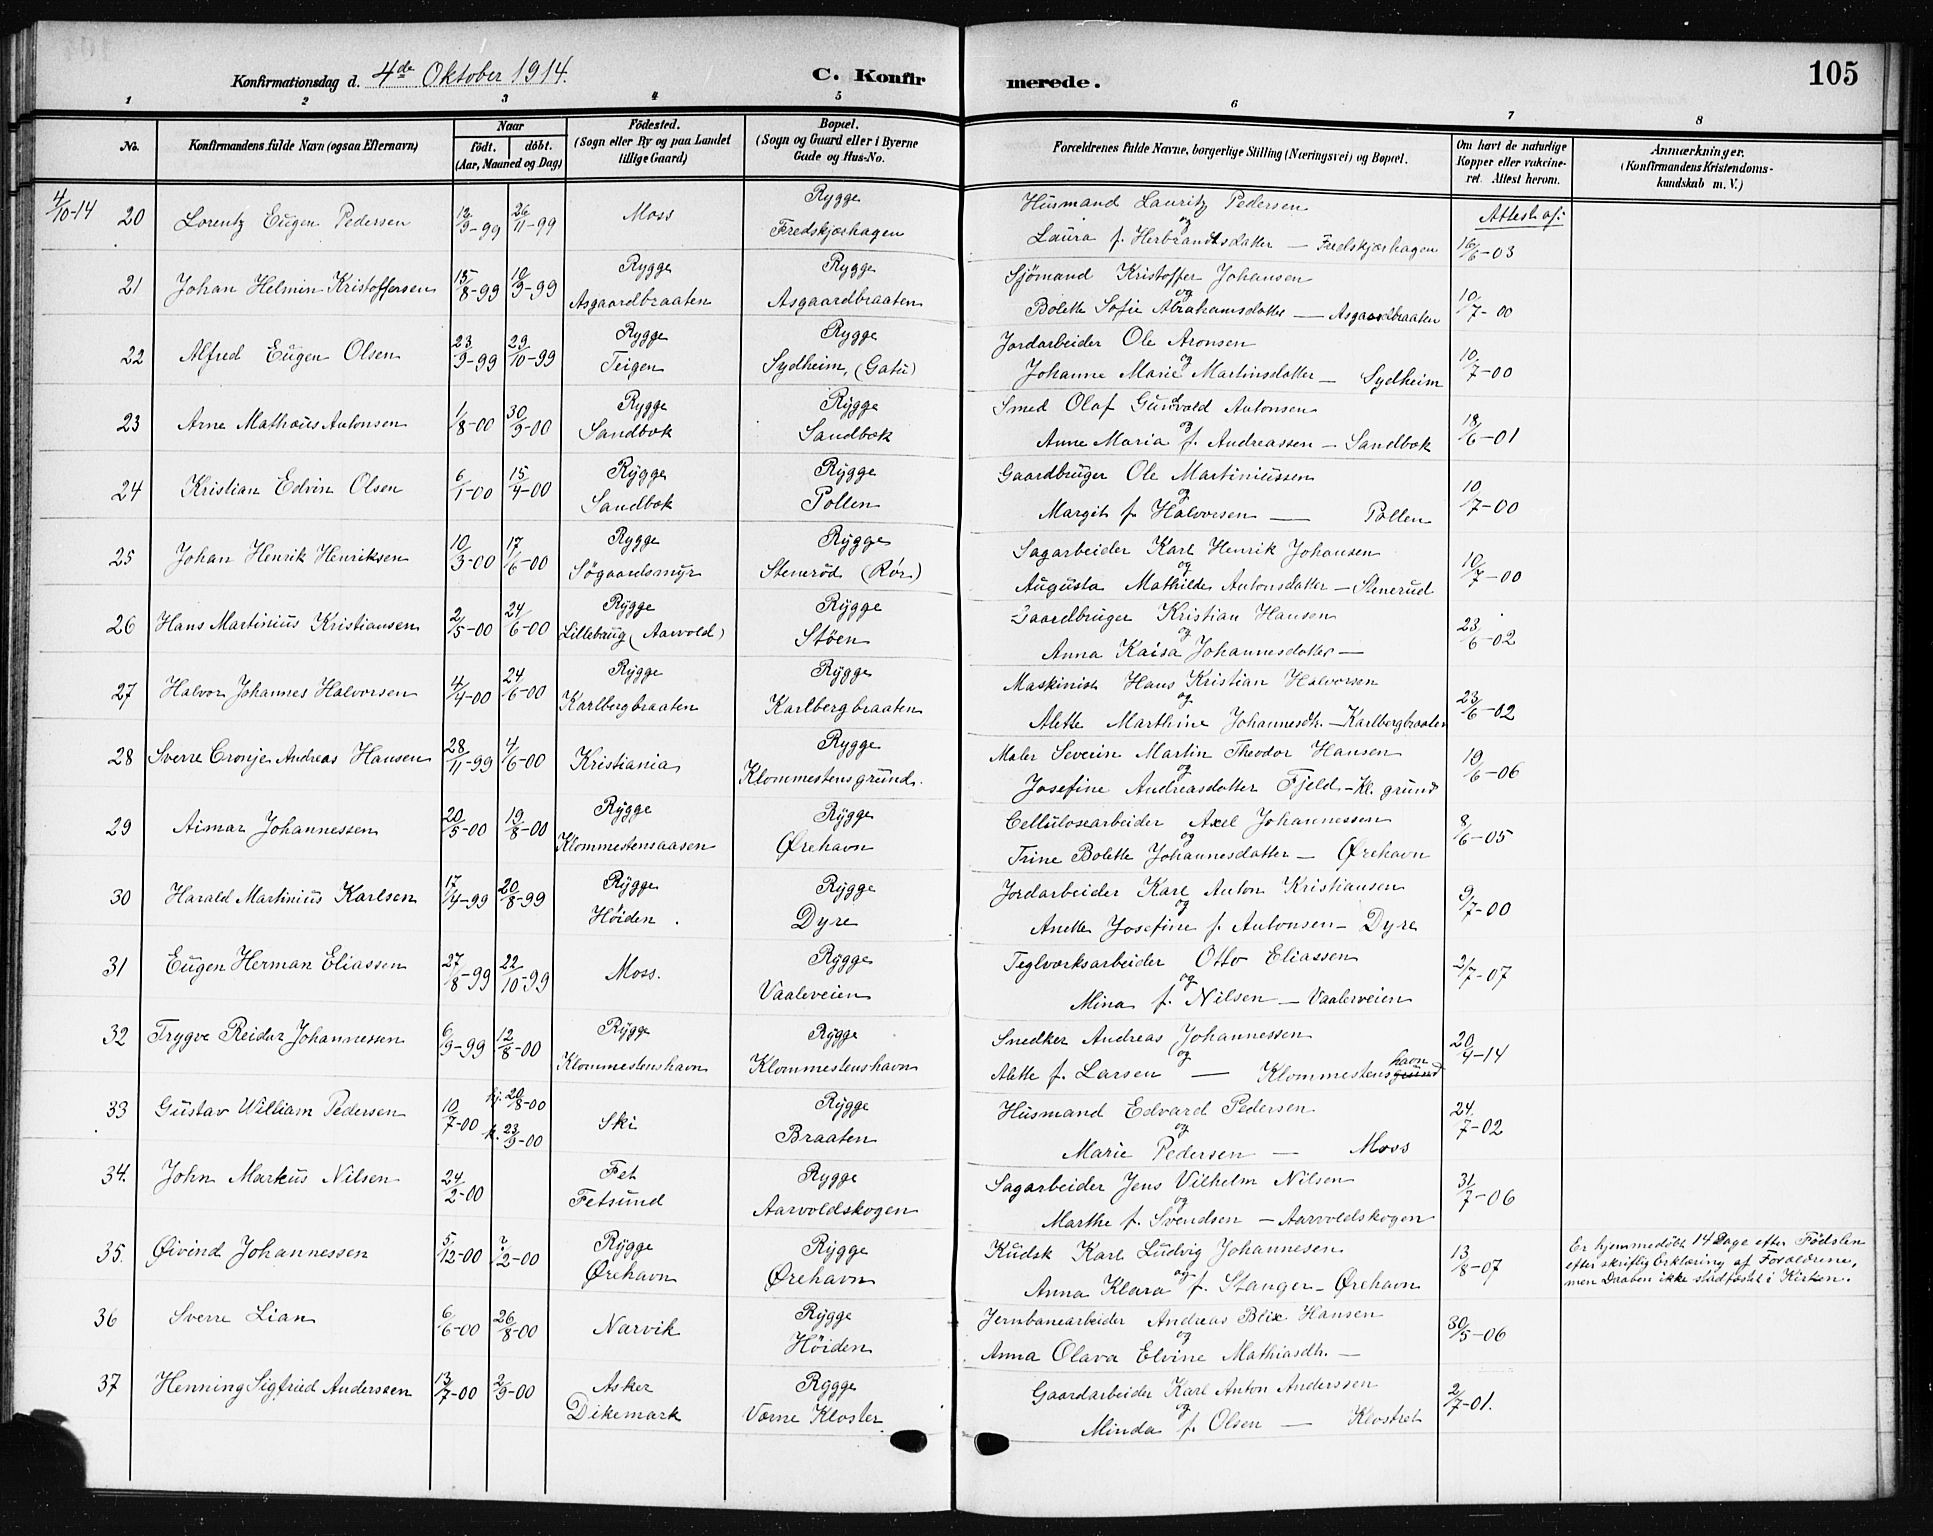 Konfirmationsdag d. 4de Oktober 1914.
C. Konfirmerede.
105
1 2 3 4 5 6 7 8
No.
Konfirmandens fulde Navn (ogsaa Efternavn)
Naar
født. døbt.
(Aar, Maaned og Dag)
Fødested.
(Sogn eller By og paa Landet
tillige Gaard)
Bopæl.
(Sogn og Gaard eller i Byerne
Gade og Hus-No.
Forældrenes fulde Navne, borgerlige Stilling (Næringsvei) og Bopæl.
Om havt de naturlige
Kopper eller vakcine-
ret. Attest herom.
Anmærkninger.
(Konfirmandens Kristendoms-
kundskab m. V.)
4/10-14 20 Lorentz Eugen Pedersen 12/9-99 26/11-99 Moss Rygge Husmand Lauritz Pedersen Attest af:
Fredskjærhagen og Laura f. Herbrandtsdatter — Fredskjærhagen 16/6-03
21 Johan Helmin Kristoffersen 15/8-99 10/9-99 Rygge Rygge Sjømand Kristoffer Johansen
Asgaardbraaten Asgaardbraaten og Bolette Sofie Abrahamsdatter — Asgaardbraaten 10/7-00
22 Alfred Eugen Olsen 23/9-99 29/10-99 Rygge Rygge Jordarbeider Ole Aronsen
Teigen Sydheim, (Gatu) og Johanne Marie Martinsdatter — Sydheim 10/7-00
23 Arne Mathæus Antonsen 1/8-00 30/9-00 Rygge Rygge Smed Olaf Gunvald Antonsen
Sandbæk Sandbæk og Anne Maria f. Andreassen — Sandbæk 18/6-01
24 Kristian Edvin Olsen 6/1-00 15/4-00 Rygge Rygge Gaardbruger Ole Martiniussen
Sandbæk Pollen og Margit f. Halvorsen — Pollen 10/7-00
25 Johan Henrik Henriksen 10/3-00 17/6-00 Rygge Rygge Sagarbeider Karl Henrik Johansen
Søgaardsmyr Stenerød (Rør) og Augusta Mathilde Antonsdatter — Stenerud 10/7-00
26 Hans Martinius Kristiansen 2/5-00 24/6-00 Rygge Rygge Gaardbruger Kristian Hansen
Lillebaug (Aarvold) Støen og Anna Kaisa Johannesdatter — 23/6-02
27 Halvor Johannes Halvorsen 4/4-00 24/6-00 Rygge Rygge Maskinist Hans Kristian Halvorsen
Karlbergbraaten Karlbergbraaten og Alette Marthine Johannesdtr. — Karlbergbraaten 23/6-02
28 Sverre Cronje Andreas Hansen 28/11-99 4/6-00 Kristiania Rygge Maler Severin Martin Theodor Hansen
Klommestensgrund. og Josefine Andreasdatter Fjeld — Kl. grund 19/6-06
29 Aimar Johannessen 20/5-00 19/8-00 Rygge Rygge Cellulosearbeider Axel Johannessen
Klommestensaasen Ørehavn og Trine Bolette Johannesdatter — Ørehavn 8/6-05
30 Harald Martinius Karlsen 17/4-99 20/8-99 Rygge Rygge Jordarbeider Karl Anton Kristiansen
Høiden. Dyre og Anette Josefine f. Antonsen — Dyre 9/7-00
31 Eugen Herman Eliassen 27/8-99 22/10-99 Moss. Rygge Teglværksarbeider Otto Eliassen
Vaaleveien og Mina f. Nilsen — Vaalerveien 2/7-07
32 Trygve Reidar Johannessen 6/9-99 12/8-00 Rygge Rygge Snedker Andreas Johannessen
Klommestenshavn Klommestenshavn og Alette f. Larsen — Klommestensgrund havn 20/4-14
33 Gustav William Pedersen 10/7-00 hj. 20/8-00 k. 23/9-00 Ski Rygge Husmand Edvard Pedersen
Braaten og Marie Pedersen — Moss 24/7-02
34. John Markus Nilsen 24/2-00 Fet Rygge Sagarbeider Jens Vilhelm Nilsen
Fetsund Aarvoldskogen og Marthe f. Svendsen — Aarvoldskogen 31/7-06
35. Øivind Johannessen 5/12-00 ?/2-00 Rygge Rygge Kudsk Karl Ludvig Johannesen
Ørehavn Ørehavn og Anna Klara f. Stanger — Ørehavn 13/8-07
Er hjemmedøbt 14 Dage efter Fødslen
efter skriftlig Erklæring af Forældrene,
men Daaben ikke stadfæstet i Kirken.
36 Sverre Lian 6/6-00 26/8-00 Narvik Rygge Jernbanearbeider Andreas Blix Hansen
Høiden og Anna Olava Elvine Mathiasdtr. — 30/5-06
37 Henning Sigfried Anderssen 13/7-00 2/9-00 Asker Rygge Gaardarbeider Karl Anton Anderssen
Dikemark Værne Kloster og Minda f. Olsen — Klostret 2/7-01.